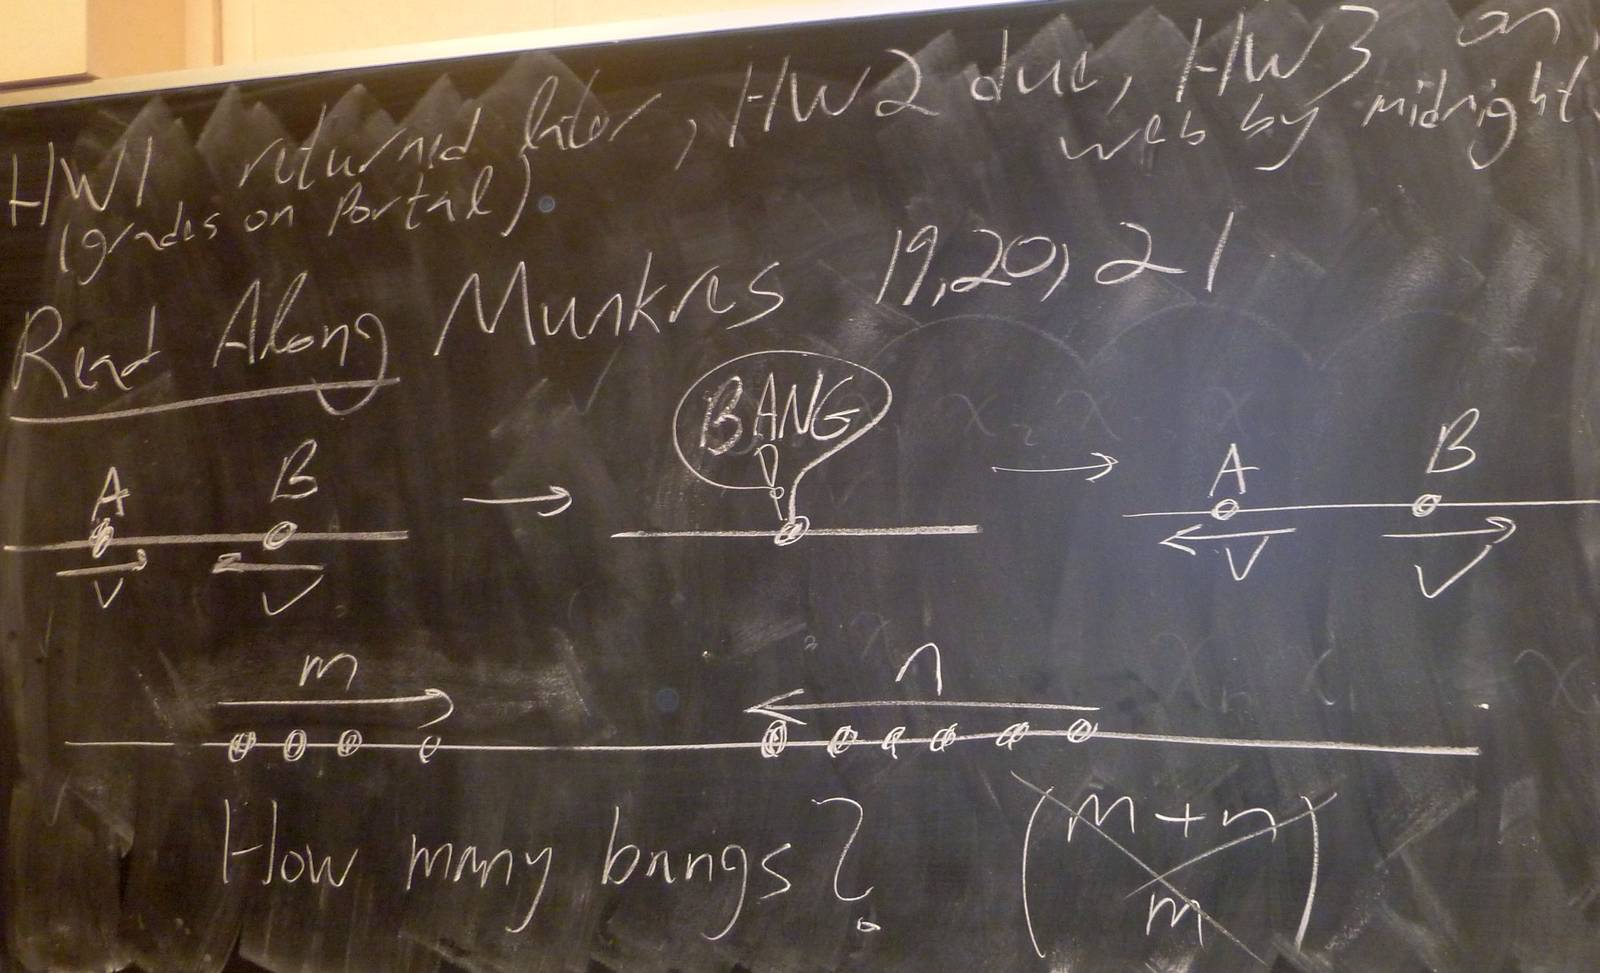 HW1 returned later, HW2 due, HW3 on
web by midnight
(grades on Portal).
Read Along Munkres 19,20,21
A B → BANG! → A B
v v v v
m n
How many bangs? (m+n m)